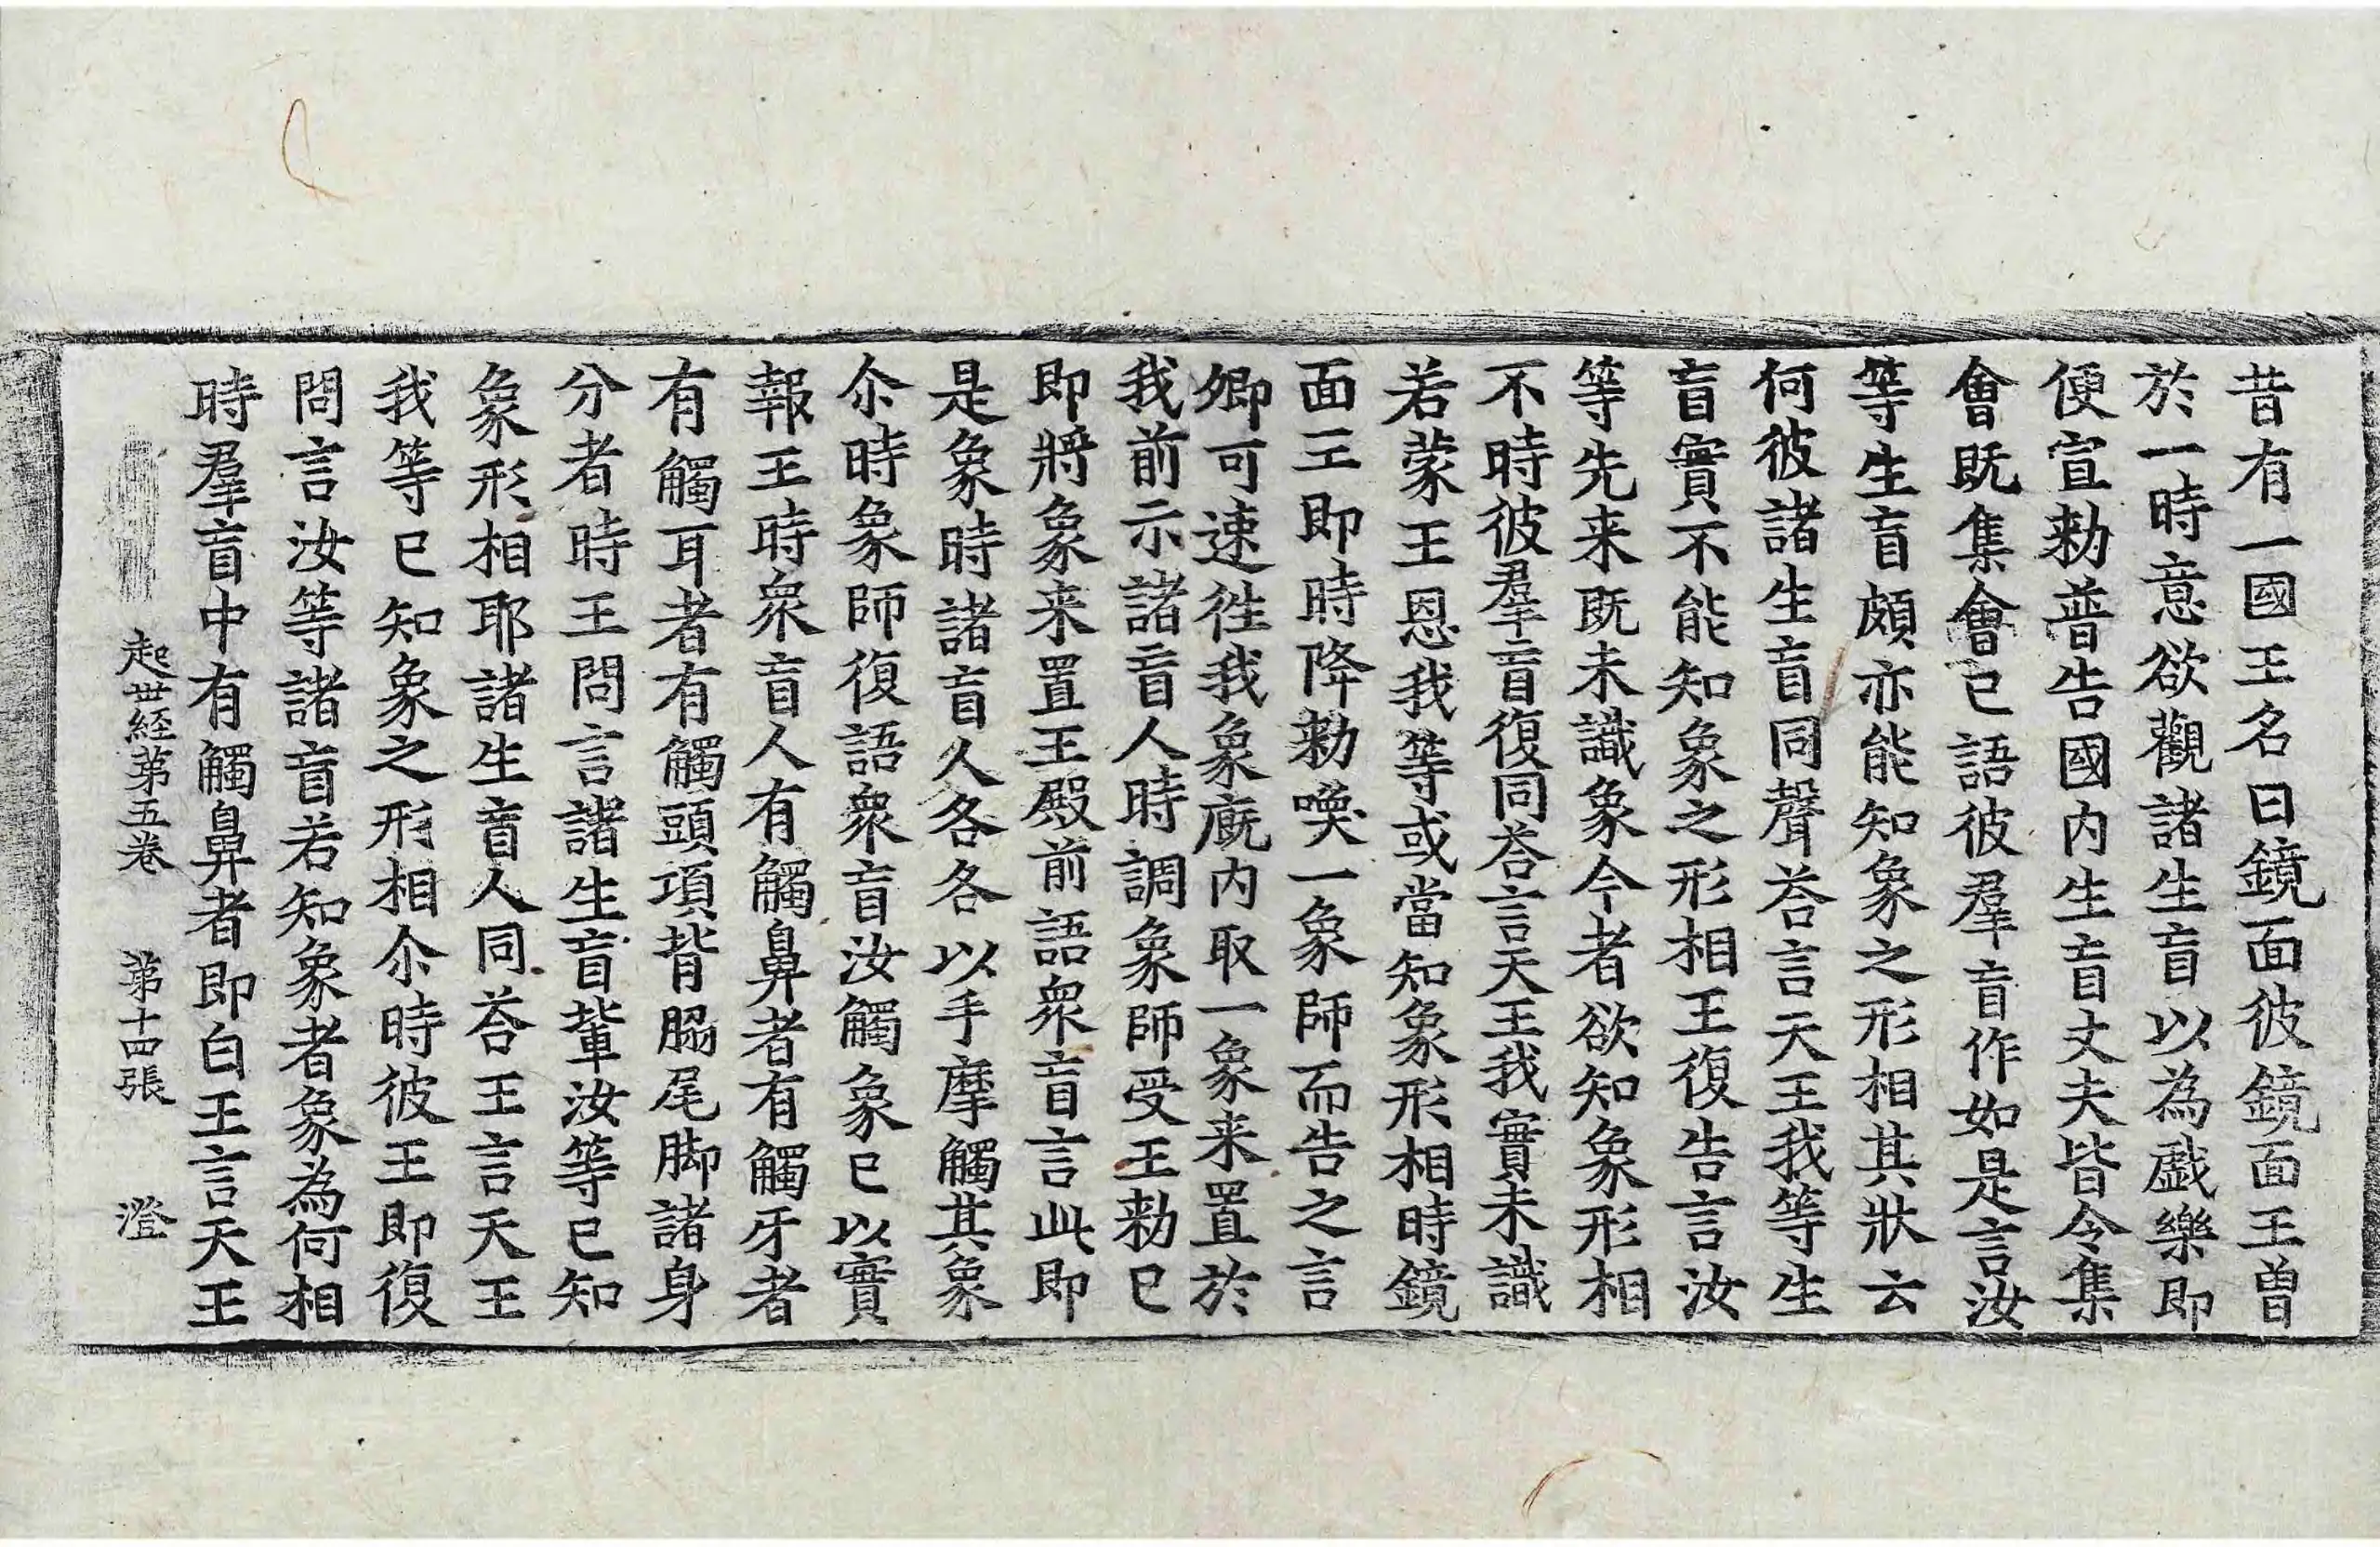 昔有一國王名曰鏡面彼鏡面王曾
於一時意欲觀諸生盲以為戲樂即
便宣勑普告國內生盲丈夫皆令集
會既集會已語彼羣盲作如是言汝
等生盲頗亦能知象之形相其狀云
何彼諸生盲同聲荅言天王我等生
盲實不能知象之形相王復告言汝
等先来既未識象今者欲知象形相
不時彼羣盲復同荅言天王我實未識
若蒙王恩我等或當知象形相時鏡
面王即時降勑喚一象師而告之言
卿可速徃我象廐內取一象来置於
我前示諸盲人時調象師受王勑已
即將象来置王殿前語衆盲言此即
是象時諸盲人各各以手摩觸其象
尒時象師復語衆盲汝觸象已以實
報王時衆盲人有觸鼻者有觸牙者
有觸耳者有觸頭項背脇尾脚諸身
分者時王問言諸生盲輩汝等已知
象形相耶諸生盲人同荅王言天王
我等已知象之形相尒時彼王即復
問言汝等諸盲若知象者象為何相
時羣盲中有觸鼻者即白王言天王
起世経第五卷 第十四張 澄